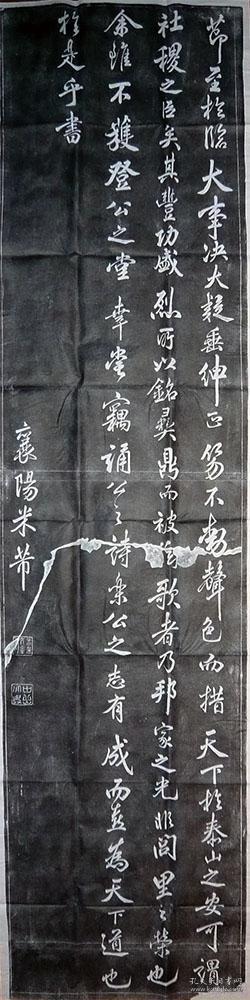 節至於臨大事決大疑垂紳正笏不動聲色而措天下於泰山之安可謂
社稷之臣矣其豐功盛烈所以銘彝鼎而被弦歌者乃邦家之光非閭里之榮也
余雖不獲登公之堂幸嘗竊誦公之詩樂公之志有成而喜為天下道也
於是乎書
襄陽米芾
孔夫子旧书网